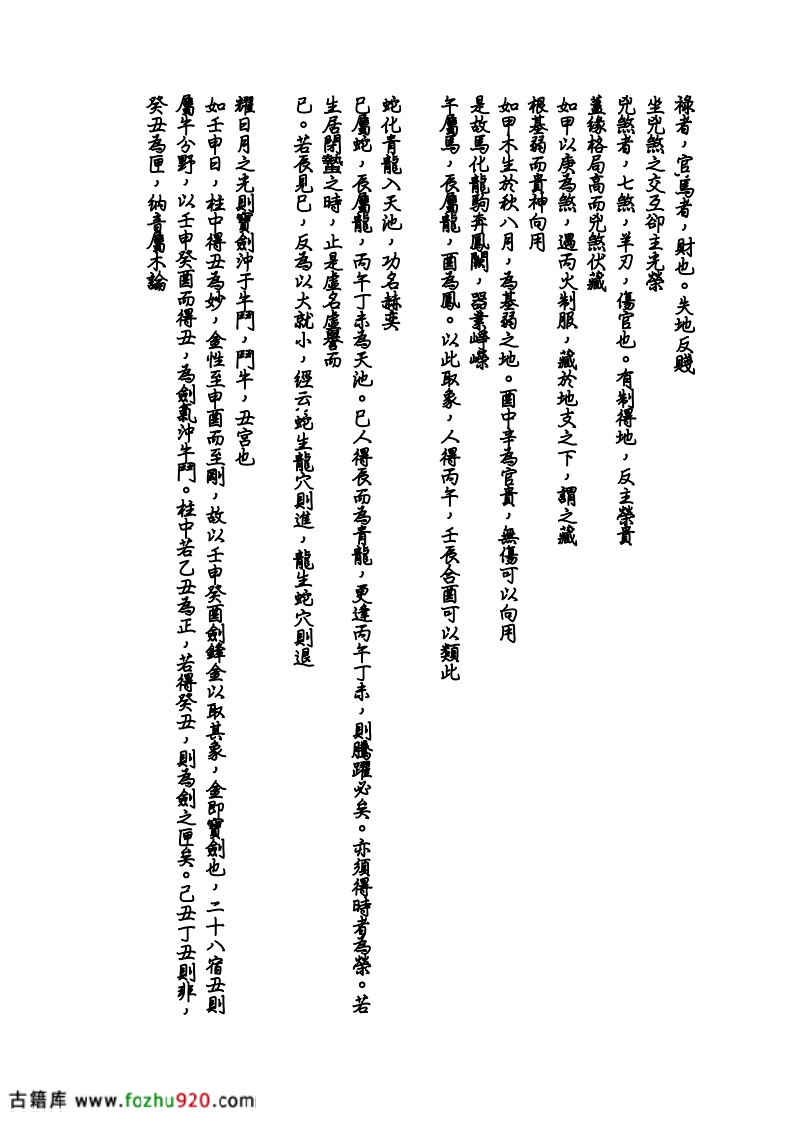 祿者，官馬者，財也。失地反賤
坐兇煞之交互卻主光榮
兇煞者，七煞，羊刃，傷官也。有制得地，反主榮貴
蓋緣格局高而兇煞伏藏
如甲以庚為煞，遇丙火制服，藏於地支之下，謂之藏
根基弱而貴神向用
如甲木生於秋八月，為基弱之地。酉中辛為官貴，無傷可以向用
是故馬化龍駒奔鳳闕，器業崢嶸
午屬馬，辰屬龍，酉為鳳。以此取象，人得丙午，壬辰合酉可以類此
蛇化青龍入天池，功名赫奕
巳屬蛇，辰屬龍，丙午丁未為天池。巳人得辰而為青龍，更逢丙午丁未，則騰躍必矣。亦須得時者為榮。若
生居閉蟄之時，止是虛名虛譽而
已。若辰見巳，反為以大就小，經云：蛇生龍穴則進，龍生蛇穴則退
耀日月之光則寶劍沖于牛鬥，鬥牛，丑宮也
如壬申日，柱中得丑為妙，金性至申酉而至剛，故以壬申癸酉劍鋒金以取其象，金即寶劍也，二十八宿丑則
屬牛分野，以壬申癸酉而得丑，為劍氣沖牛鬥。柱中若乙丑為正，若得癸丑，則為劍之匣矣。己丑丁丑則非，
癸丑為匣，納音屬木論
古籍库 www.fozhu920.com